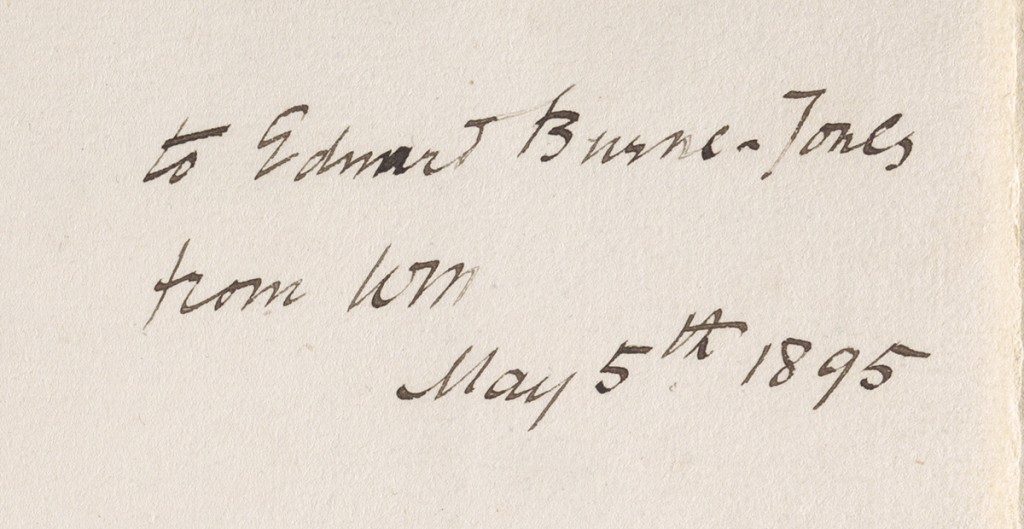 to Edward Burne-Jones
from WM
May 5th 1895